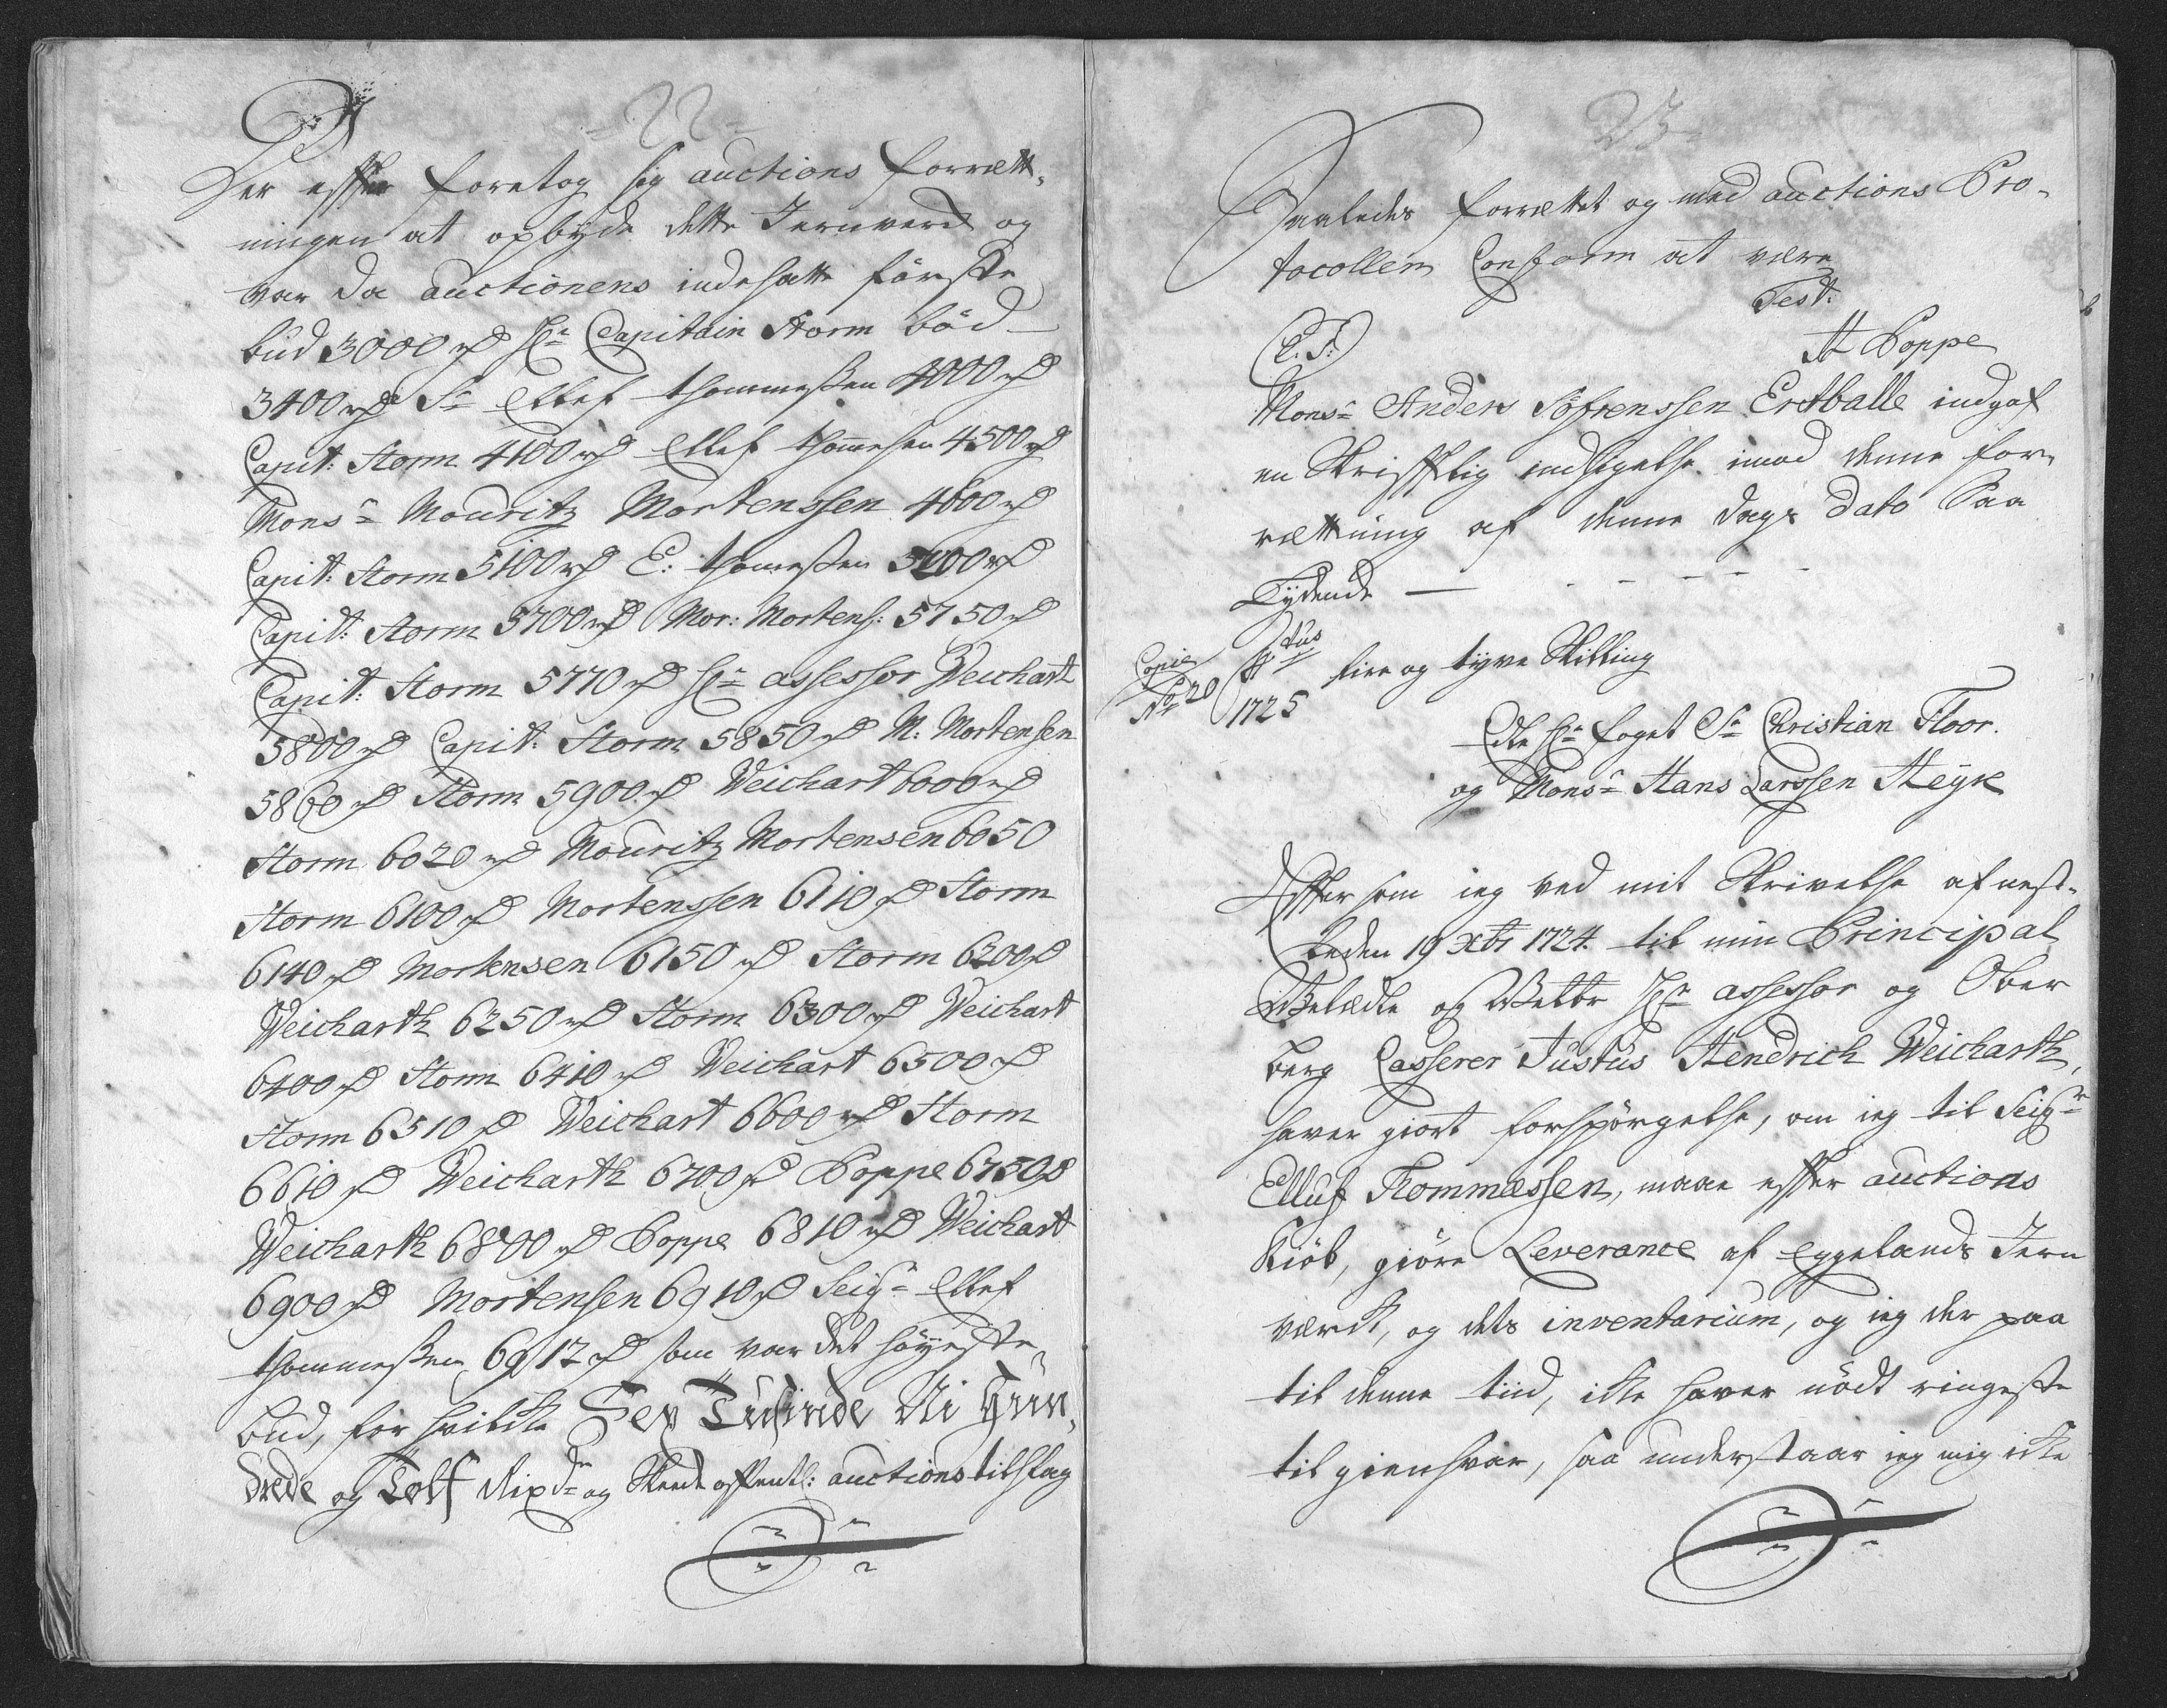 22
Der effter foretog sig auctions forrætt,
ningen at opbyde dette Jernverck og
var da auctionens indsatte förste
bud 3000 rd Hr Capitain Storm böd
3400 rd Sr Ellef Thommeßen 4000 rd
Capit: Storm 4100 rd Ellef Thomesen 4500 rd
Monsr Mouritz Mortenssen 4600 rd
Capit: Storm 5100 rd E: Thomeßen 5200 rd
Capit: Storm 5700 rd Mor: Mortens: 5750 rd
Capit: Storm 5770 rd Hr assessor Weichart
5800 rd Capit: Storm 5850 rd M: Mortensen
5860 rd Storm 5900 rd Weichart 6000 rd
Storm 6020 rd Mouritz Mortensen 6050
Storm 6100 rd Mortenssen 6110 rd Storm
6140 rd Mortensen 6150 rd Storm 6200 rd
Weicharth 6250 rd Storm 6300 rd Weichart
6400 rd Storm 6410 rd Weichart 6500 rd
Storm 6510 rd Weichart 6600 rd Storm
6610 rd Weicharth 6700 rd Poppe 6750 rd
Weicharth 6800 rd Poppe 6810 rd Weichart
6900 rd Mortensen 6910 rd Seigr Ellef
Thommeßen 6912 rd som var det höyeste
bud, for hvilcke Sex Tusinde Ni Hun,
drede og Tolf Rixdr og skeede offentl: auctions tilslag
23
Saaledes forrættet og med auctions Pro,
tocollen Conform at være
Test:
(L.S.) A Poppe
Monsr Anders Söfrenssen Ertballe indgaf
en Skrifftlig indsigelse imod denne for,
rættning af denne dags dato Saa
Lydende
Copie
No 20
1725
fire og tyve Skilling
Edle Hr foget Sr Christian Floor.
og Monsr Hans Larssen Heyk
Effter som ieg ved mit Skrivelse af nest,
leden 19 Xbr 1724 til min Principal
Velædle og Velbr Hr assessor og Ober
berg Casserer Justus Hendrich Weicharth,
haver giort forspörgelse, om ieg til Seigr
Elluf Thommæssen, maae effter auctions
Kiöb, giöre Leverance af Eggelands Jern
værck, og dets inventarium, og ieg der paa
til denne tiid, icke haver nödt ringeste
til giensvar, saa understaar ieg mig icke